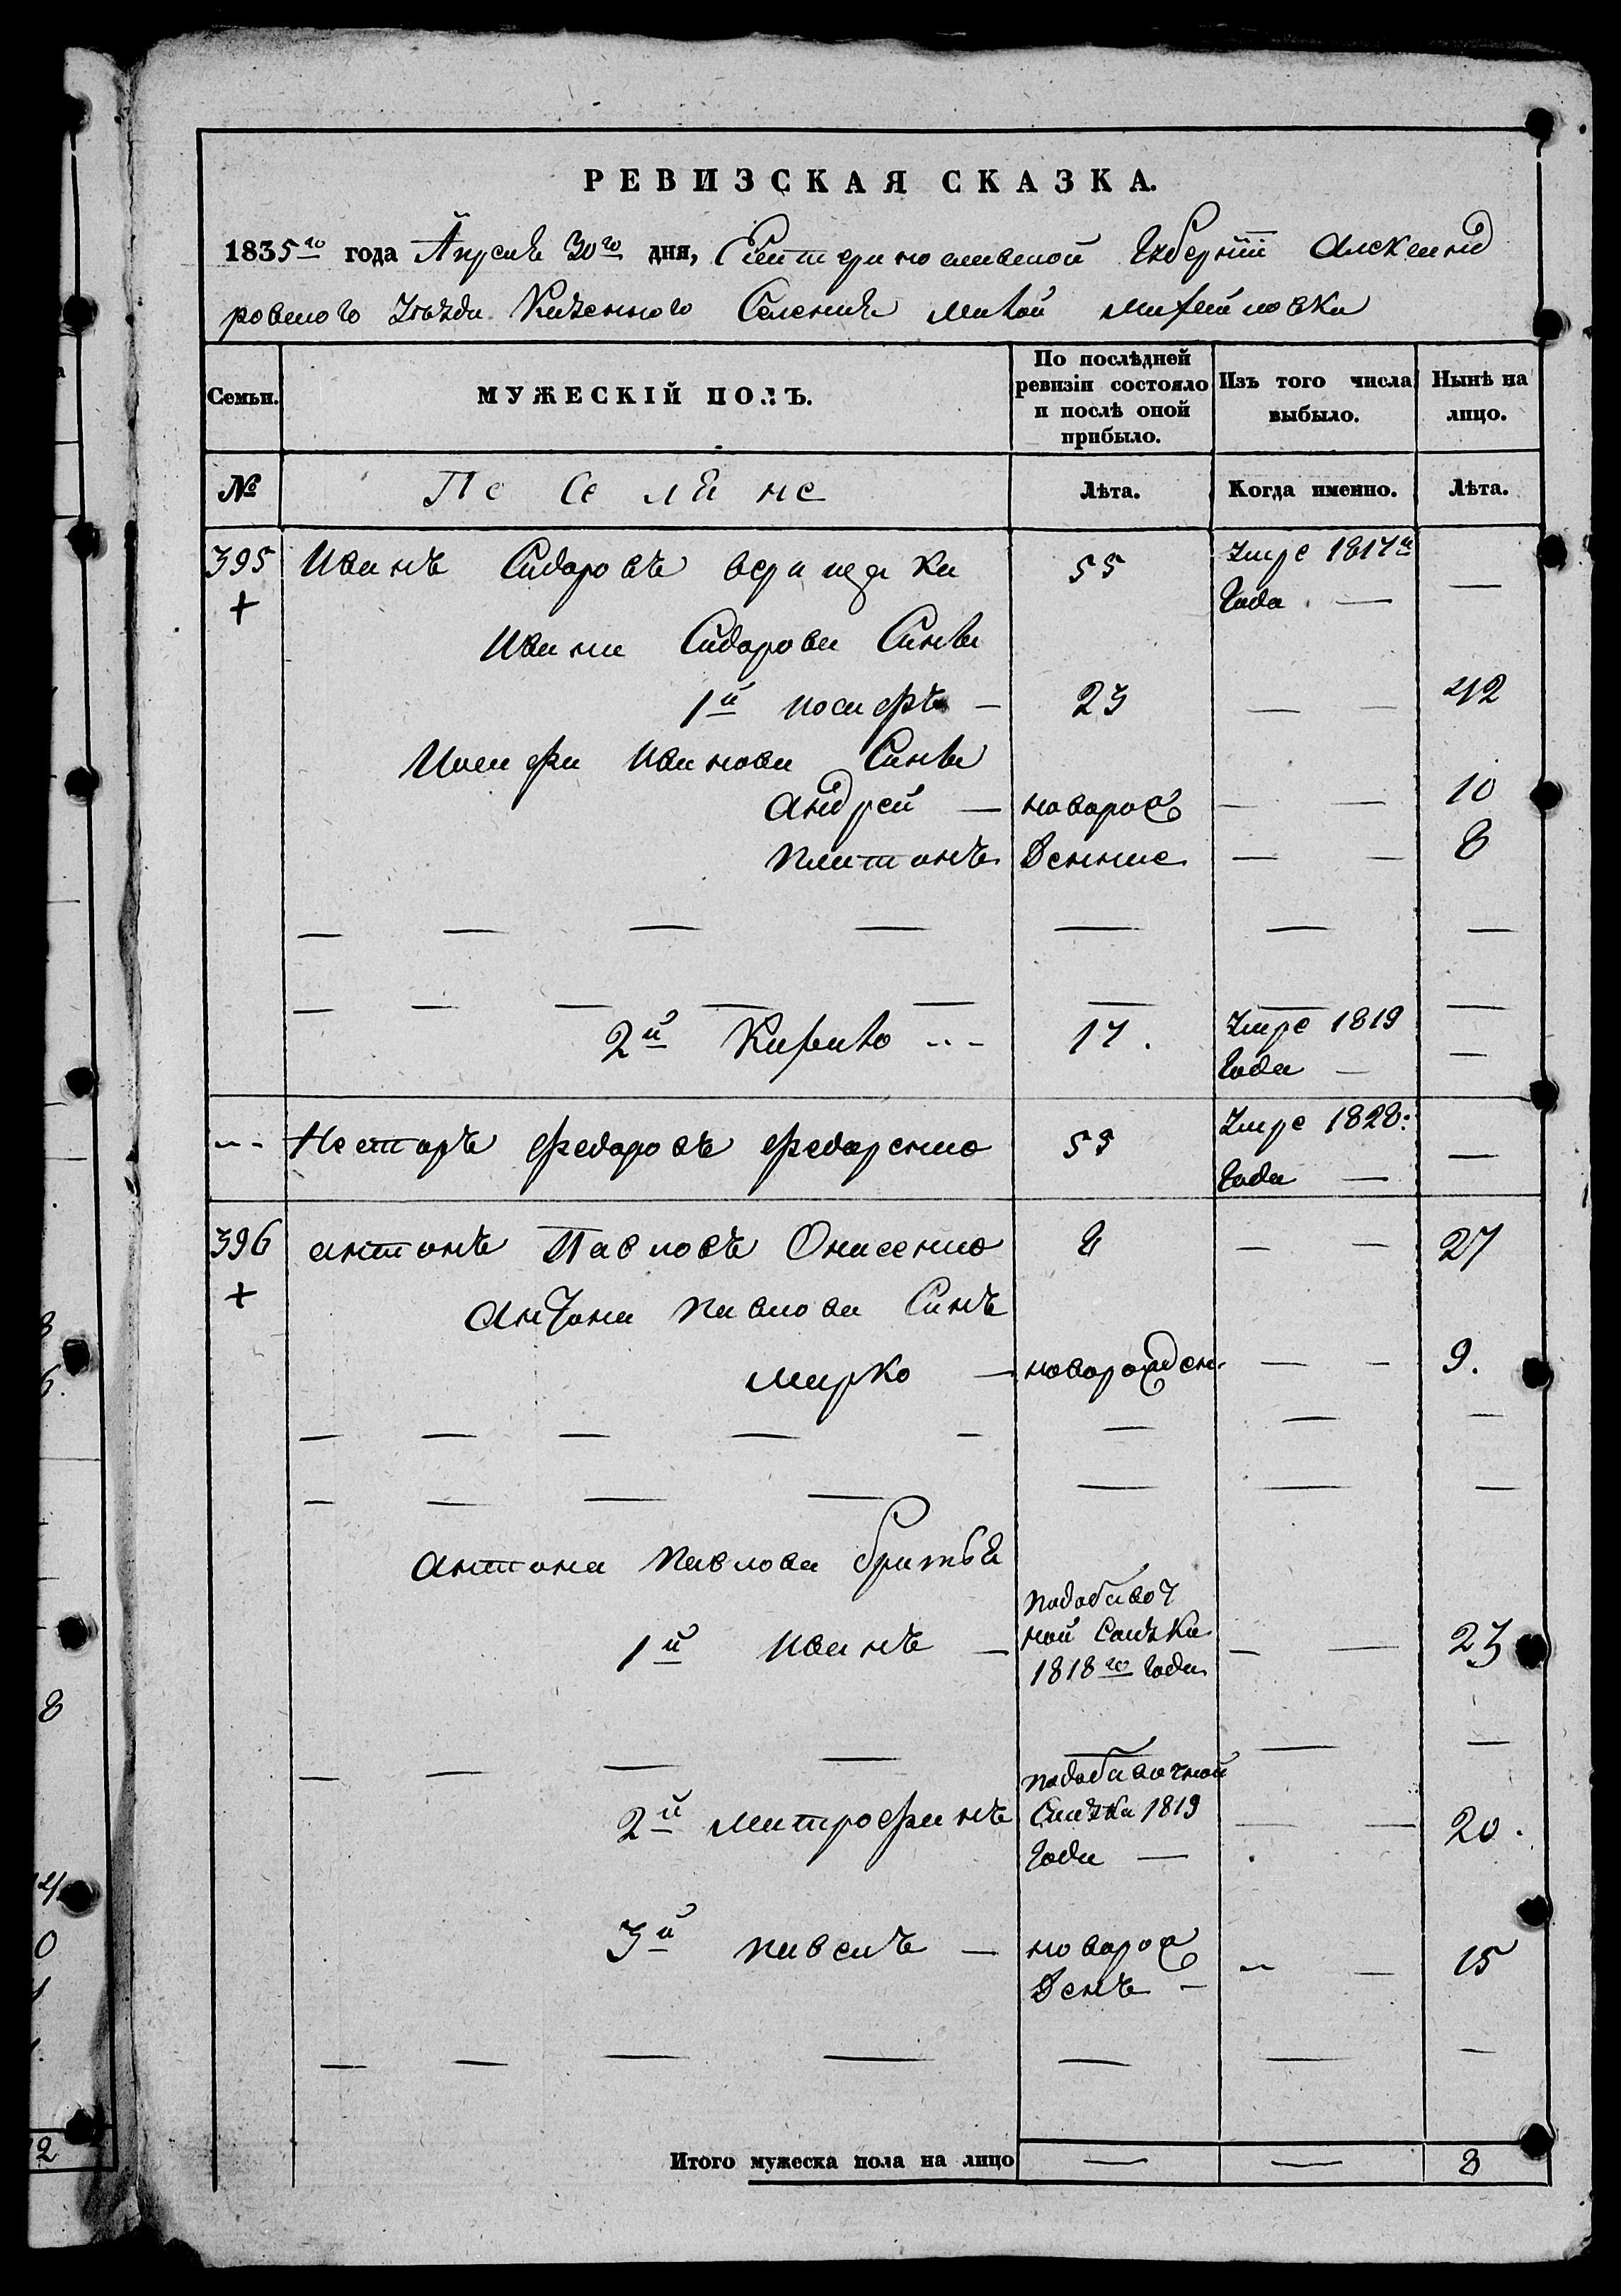 РЕВИЗСКАЯ СКАЗКА.
1835го года Апреля 30го дня, Екатеринославской Губернiи Александ
ровского Уѣзда Казенного Селенiя малой михайловки
Семьи.
МУЖЕСКІЙ ПОЛЪ.
По послѣдней ревизіи состояло и послѣ оной прибыло.
Изъ того числа выбыло.
Нынѣ на лицо.
№ По Се ля не Лѣта. Когда именно. Лѣта.
395 Иванъ Сидоровъ 55 Умре 1817го
+ Года — —
Ивана Сидорова Сынъ
1й иосифъ — 23 — — 42
Иосифа Иванова Сынъ
андрей — новорож — — 10
платонъ денные — — 8
— — — — — — —
— — — — — — — —
2й Кирило - - - 17. Умре 1819
Года — —
- - Несторъ федоровъ федоренко 55 Умре 1828:
Года — —
396 антонъ Павловъ Онисенко 8 — — 27
+
Антона павлова Сынъ
марко — новорожден. — — 9.
— — — — — — — —
— — — — — — —
антона павлова братья
подобавоч
1й иванъ — ной Сказки — — 23
1818го Года
— — — — — — —
подобавочной
2й митрофанъ Сказки 1819 — — 20.
Года —
3й павелъ — новорож - — 15
денъ —
— — — — — — —
Итого мужеска пола на лицо — — 8
8
6.
8
14
0
12